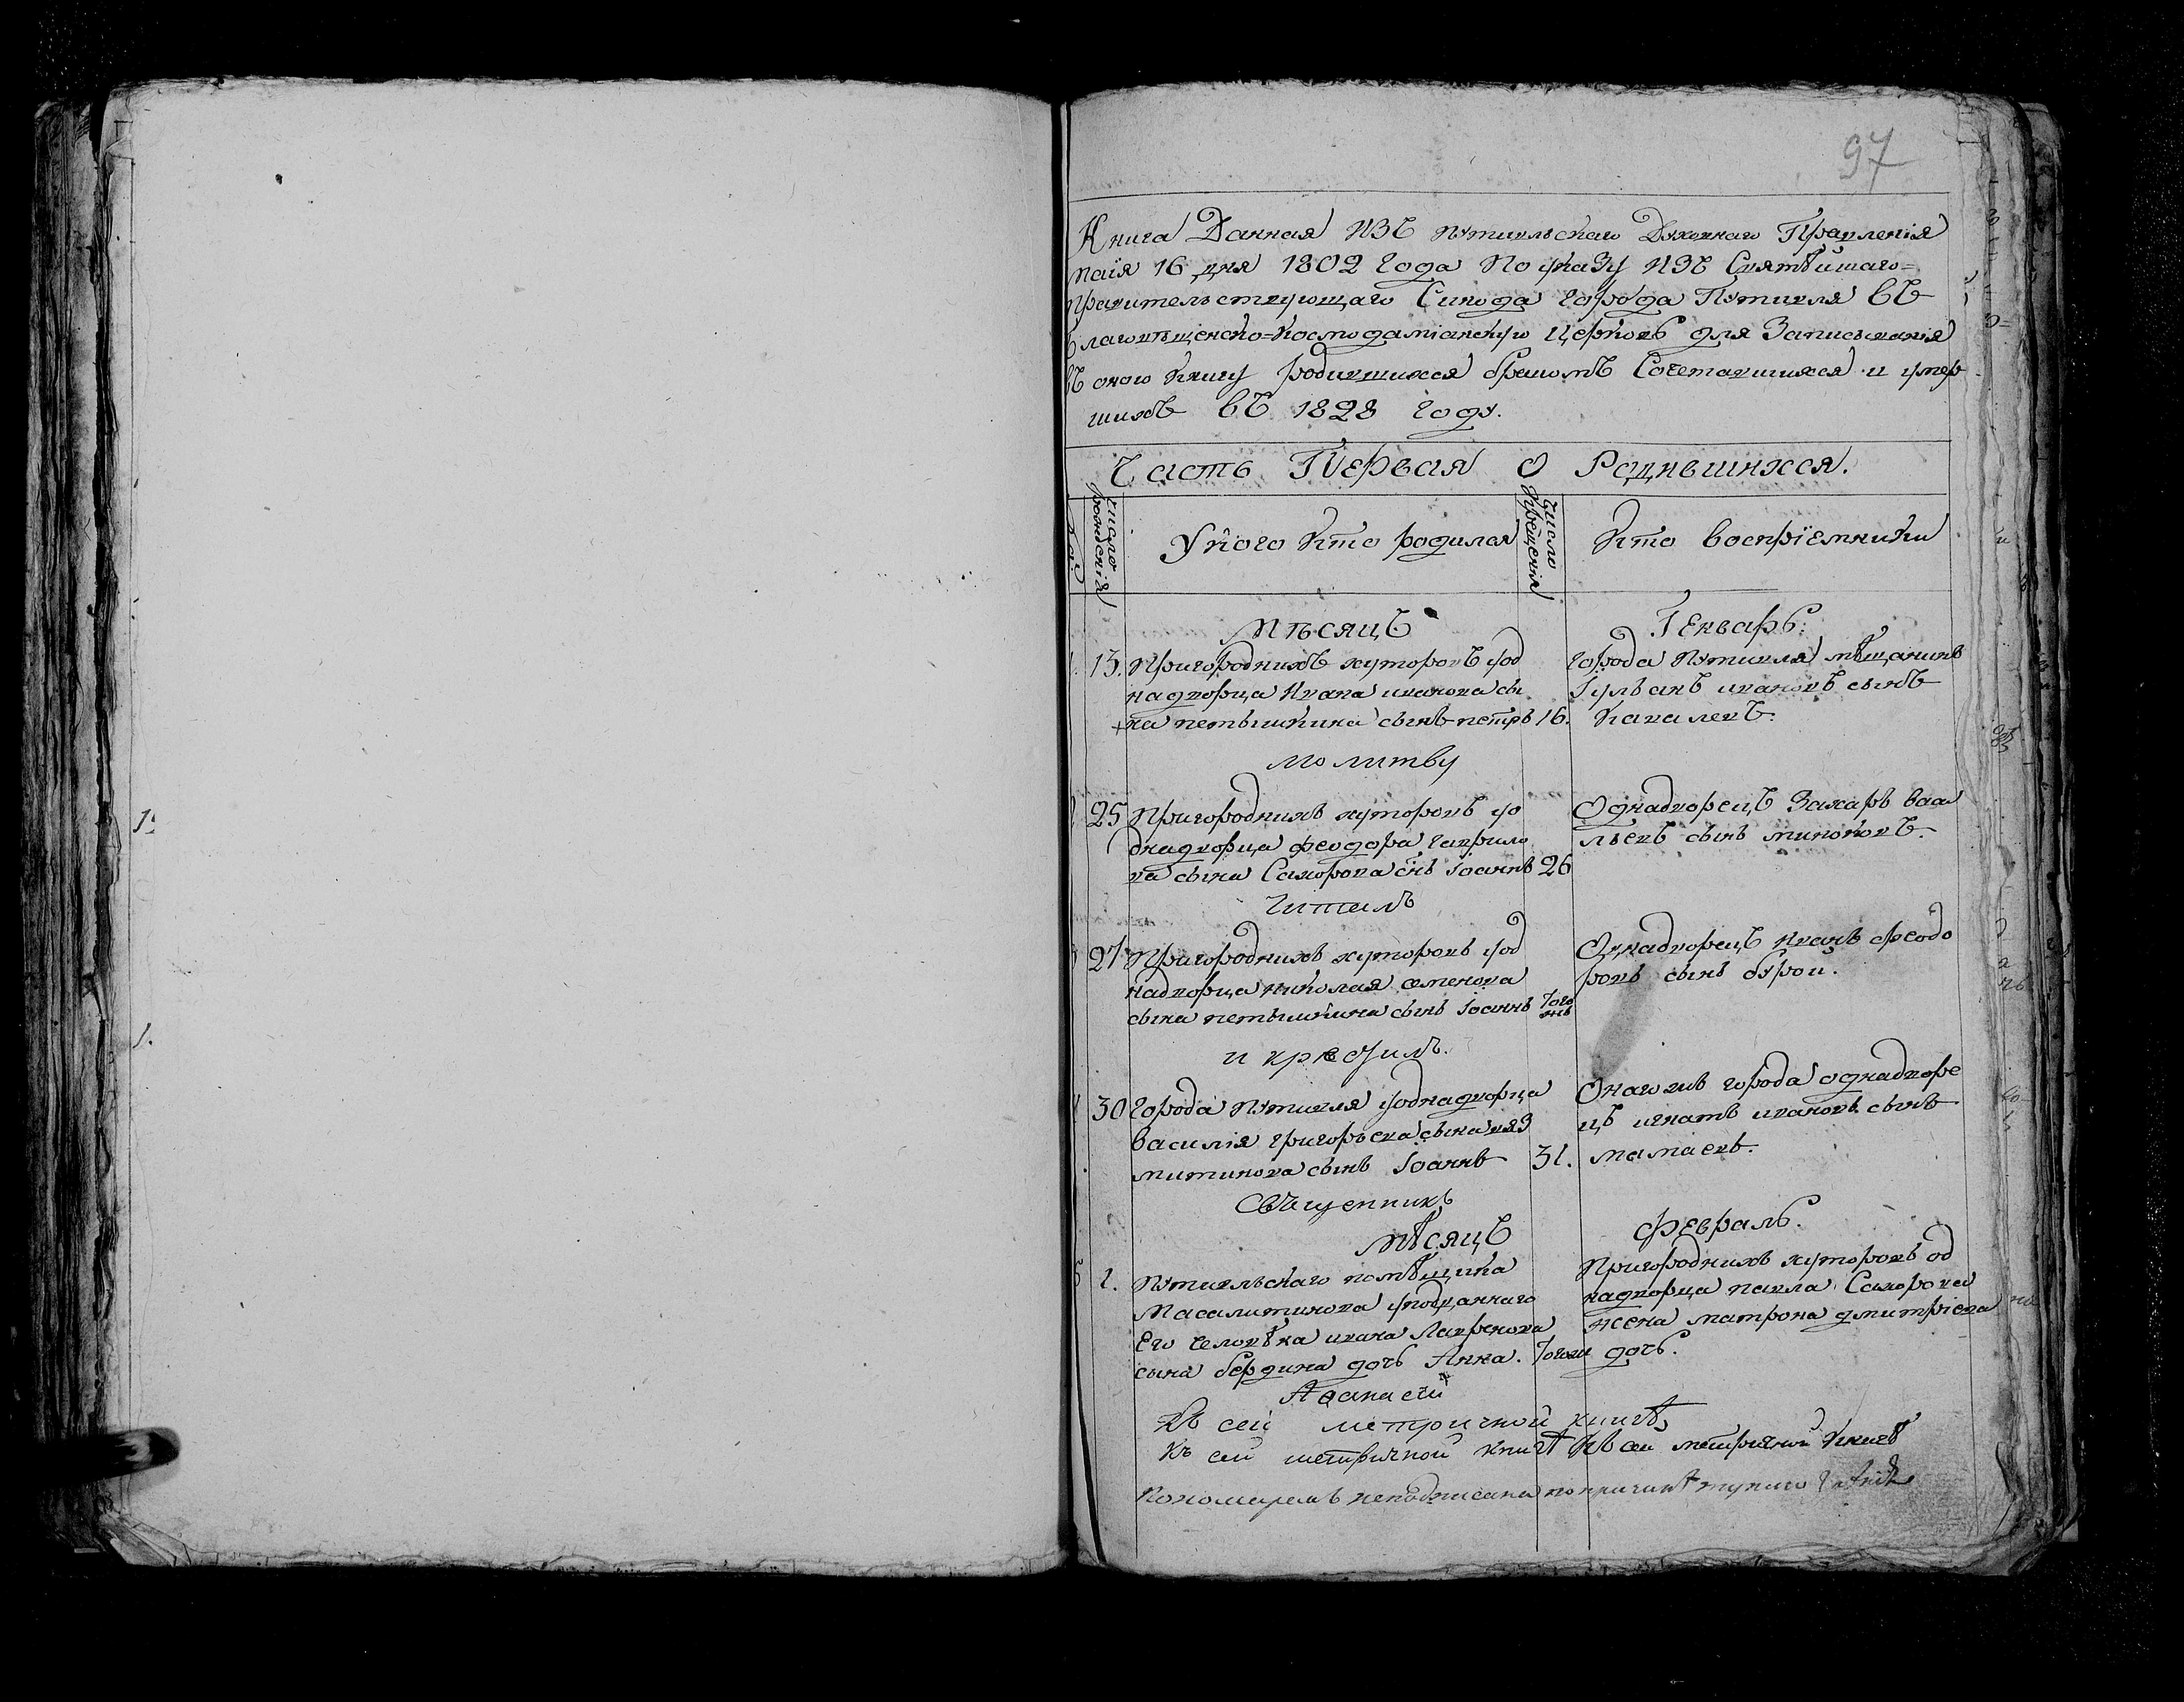 97
Книга Данная изъ путивльскаго Духовнаго Правленія
маія 16 дня 1802 года по указу изъ Святѣйшаго=
правительствующаго Синода города Путивля въ
благовѣщенско=космодаміанскую церковь для Записыванія
въ оною книгу родившихся бракомъ Сочетавшихся и умер
шихъ въ 1828 году.
Часть Первая о Родившихся.
число рожденія
У кого кто родился
число крещенія
кто воспріемники
мѣсяцъ
Генварь.
13. пригородныхъ хуторовъ у од
надворца ивана иванова сы
на петышкина сынъ петръ 16.
города путивля мѣщанинъ
Іульянъ ивановъ сынъ
кавалевъ.
молитву
25 пригородныхъ хуторовъ у о
днадворца феодора гаврило
ва сына Сахорова снъ Іоаннъ 26
Однадворецъ Захаръ васи
льевъ сынъ
читалъ
27 пригородныхъ хуторовъ у од
надворца николая семенова
сына петышкина сынъ Іоаннъ того
Однадворецъ иванъ феодо
ровъ сынъ бурои.
и крестилъ.
30 города путивля у однадворца
василія григорьева сына вяз
митинова сынъ Іоаннъ 31.
Онагожъ города однадворе
цъ игнатъ ивановъ сынъ
мамаевъ.
Священникъ
мѣсяцъ
Февраль.
1. путивльскаго помѣщика
масалитинова у подданнаго
Его человѣка ивана Лавренова
сына бердина дочь Анна. того
пригородныхъ хуторовъ од
надворца павла Сахорова
жена матрона дмитріева
дочь.
Аѳанасій
Къ сей метричной книгѣ
Къ сей метричной книгѣ Къ сей метричной книгѣ
Пономаремъ неподписана по причинѣ